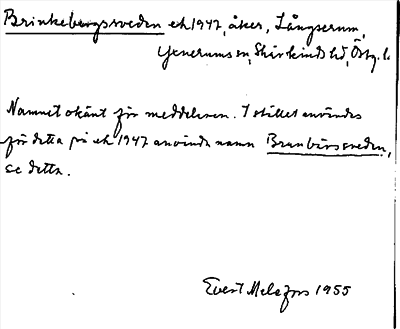 Brinkebergsveden ek 1947, åker, Långserum,
Yxnerums sn, Skärkinds hd, Östg. l.
Namnet okänt för meddelaren. I stället användes
för detta på ek 1947 använda namn Brunbärsveden,
se detta.
Evert Melefors 1955